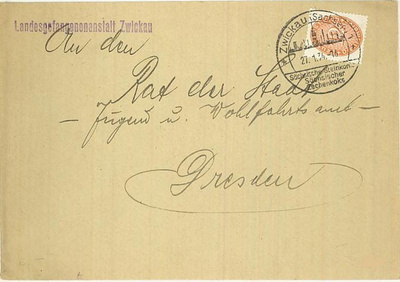 Landesgefangenenanstalt Zwickau
An den
Rat der Stadt
- Jugend u. Wohlfahrtsamt -
Dresden
Zwickau (Sachsen) 1
Sächsische Steinkohle
Sächsischer
Zechenkoks